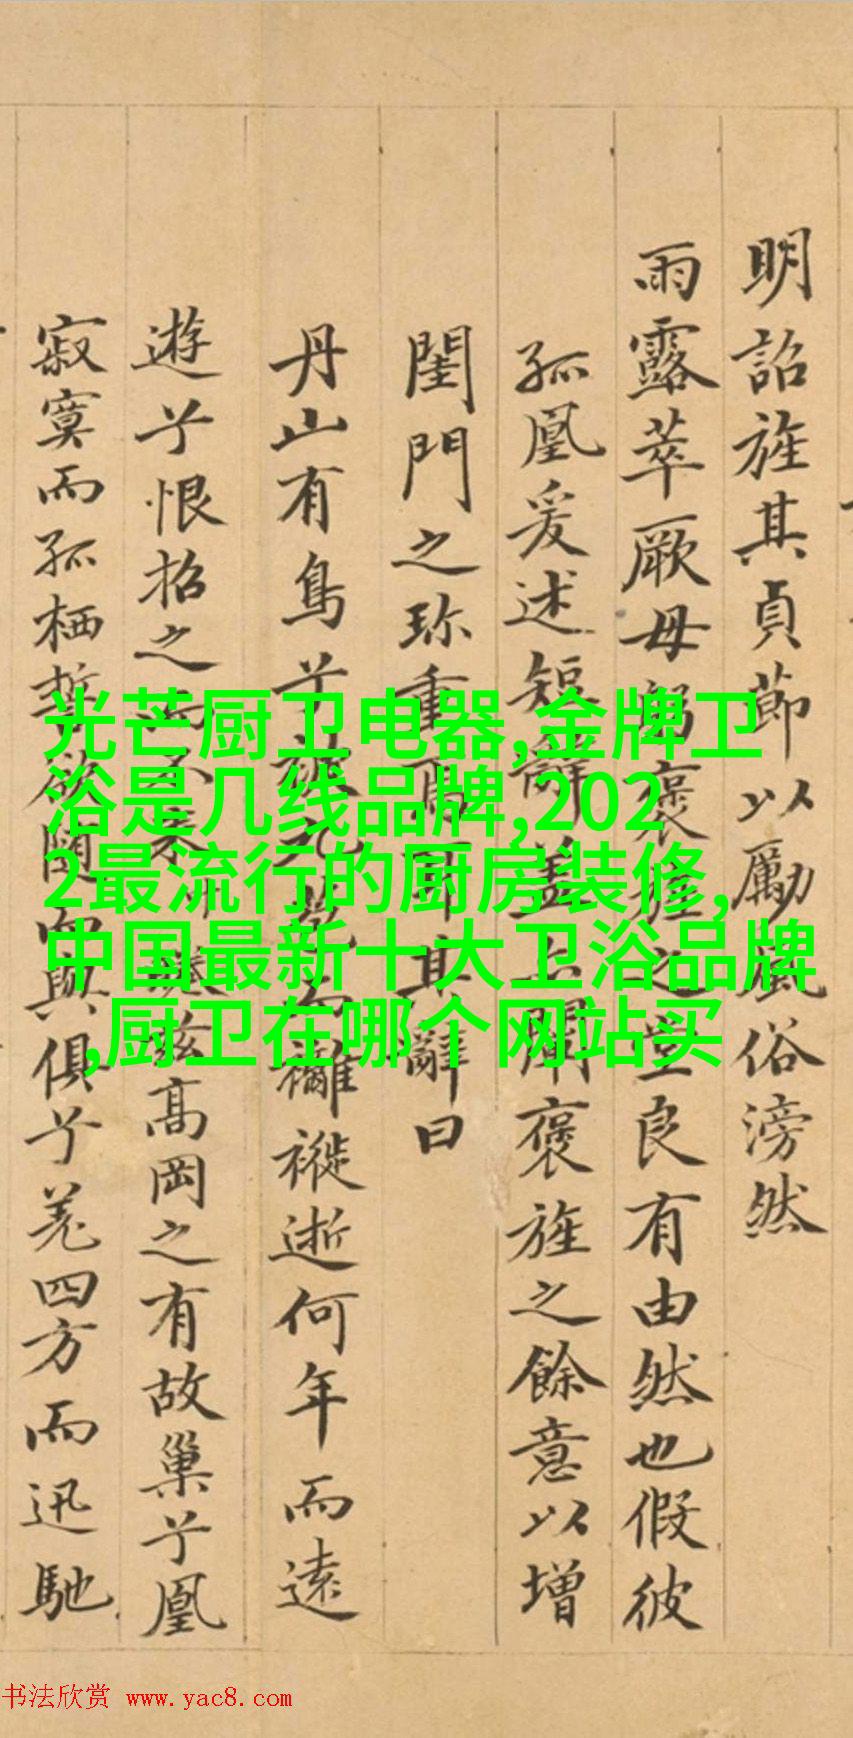 明詔旌其貞節以勵風俗滂然
雨露萃厥母躬褒旌之室良有由然也假彼
孤凰爰述短辭蓋上聞褒旌之餘意以增
閨門之珎重焉耳其辭曰
丹山有鳥兮被九苞而襹褷逝何年而遠
遊兮恨招之而不來兹高岡之有故巢兮凰
寂寞而孤栖誓欲随與俱兮羌四方而迅馳
光芒厨卫电器,金牌卫
浴是几线品牌,202
2最流行的厨房装修,
中国最新十大卫浴品牌
,厨卫在哪个网站买
书法欣赏 www.yac8.com